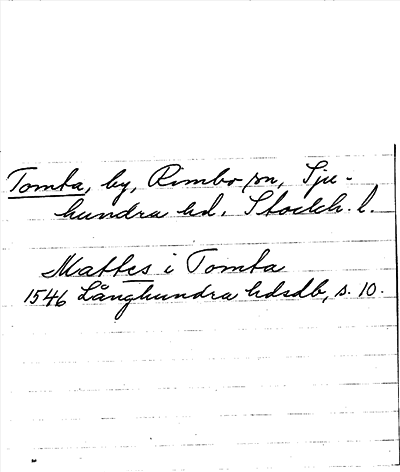 Tomta, by, Rimbo sn, Sju-
hundra hd. Stockh. l.
Mattes i Tomta
1546 Långhundra hdsdb, s. 10.